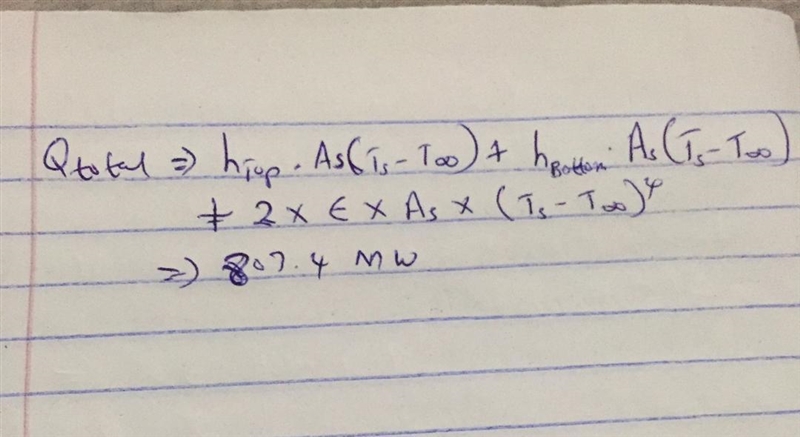 Qtotal => hTop . As(Ts - T∞) + hBottom. As(Ts - T∞)
+ 2 x ϵ x As x (Ts - T∞)⁴
=> 807.4 MW